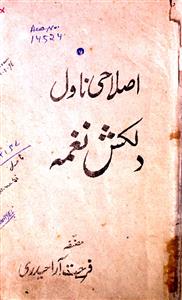 Acc. No.
14524
اصلاحی ناول
دلکش نغمہ
مصنفہ
فرحت آرا حیدری